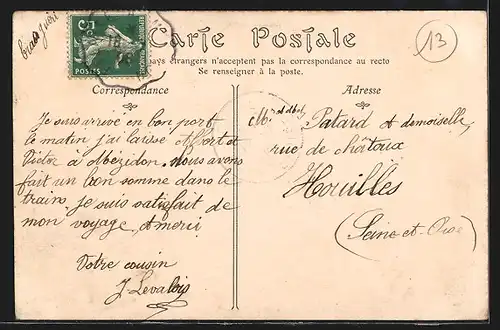 13
Carte Postale
pays étrangers n'acceptent pas la correspondance au recto
Se renseigner à la poste.
5c
POSTES
Correspondance
Adresse
Je suis arrivé en bon port
le matin j'ai laissé Albert et
Victor à Mézidon. nous avons
fait un bon somme dans le
train. je suis satisfait de
mon voyage, et merci
Votre cousin
J. Levalois
M. Patard et demoiselle,
rue de châtoux
Houilles
(Seine-et-Oise)